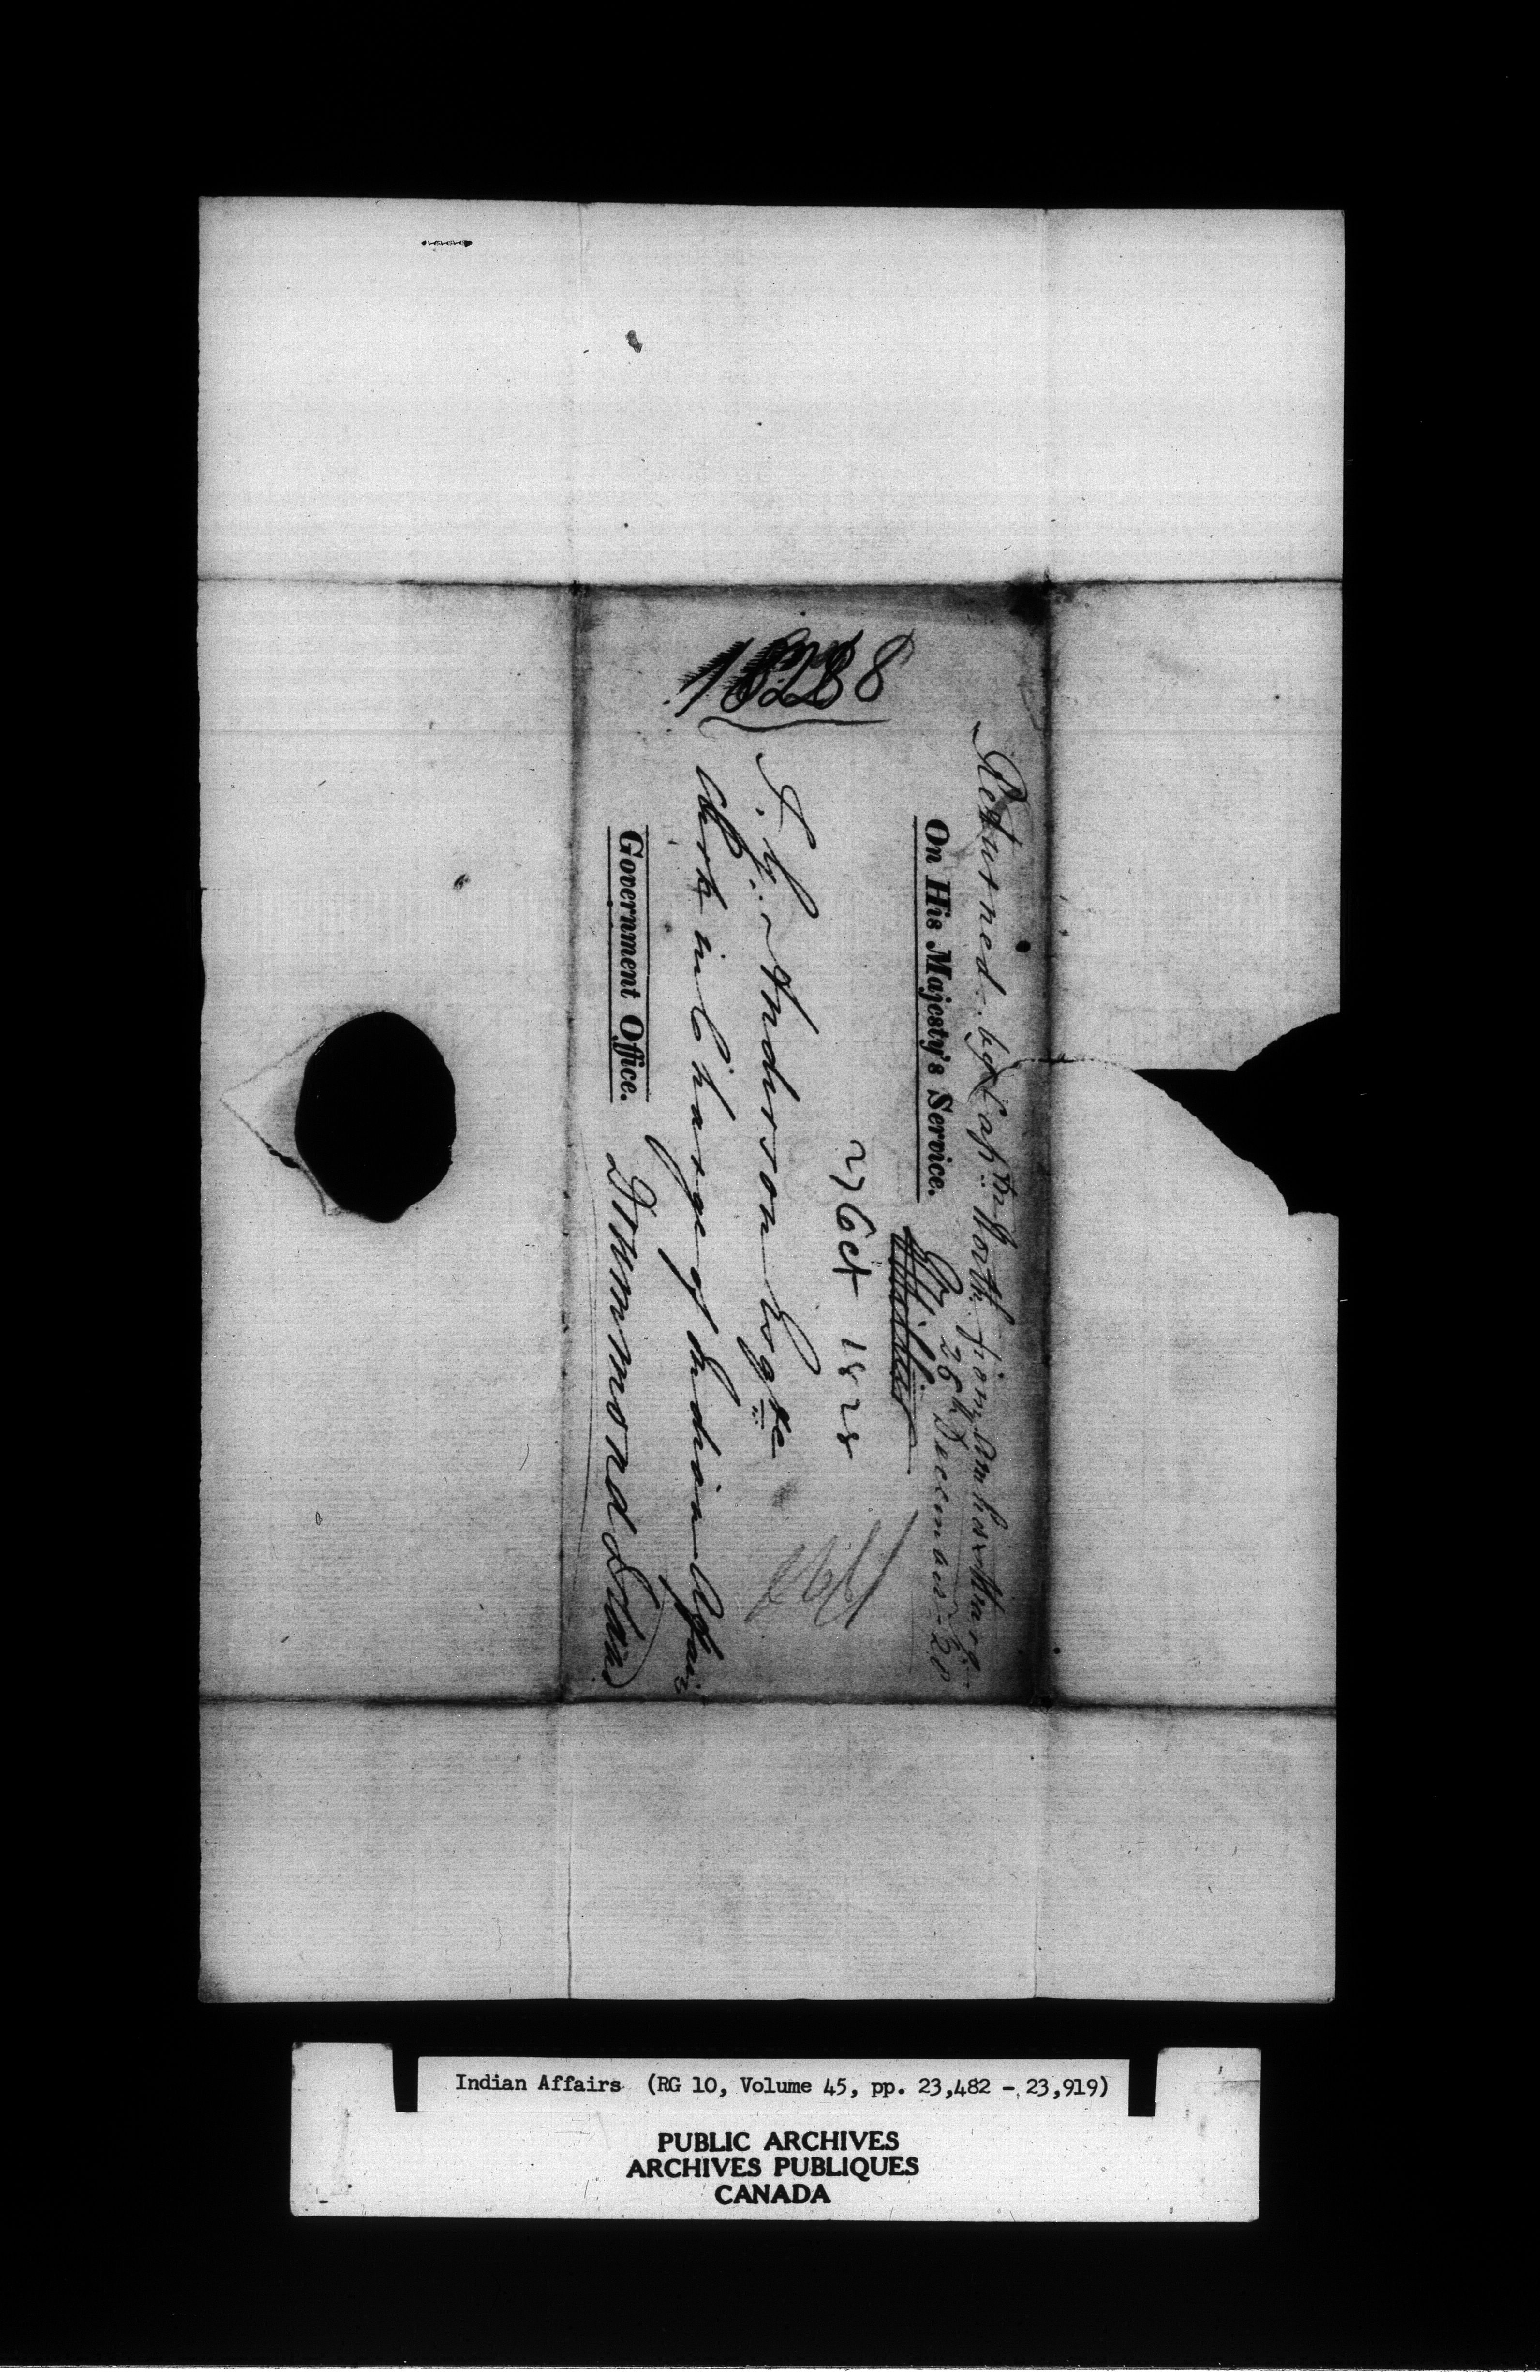 Returned by Cap.tn North from Amherstburg
26th December - 28
On His Majesty's Service.
27 Oct 1828
T. G. Anderson Esqre
Clerk in Charge of Indian Affairs
Drummond Island
Government Office.
Indian Affairs (RG 10, Volume 45, pp. 23,482 - 23,919)
PUBLIC ARCHIVES
ARCHIVES PUBLIQUES
CANADA